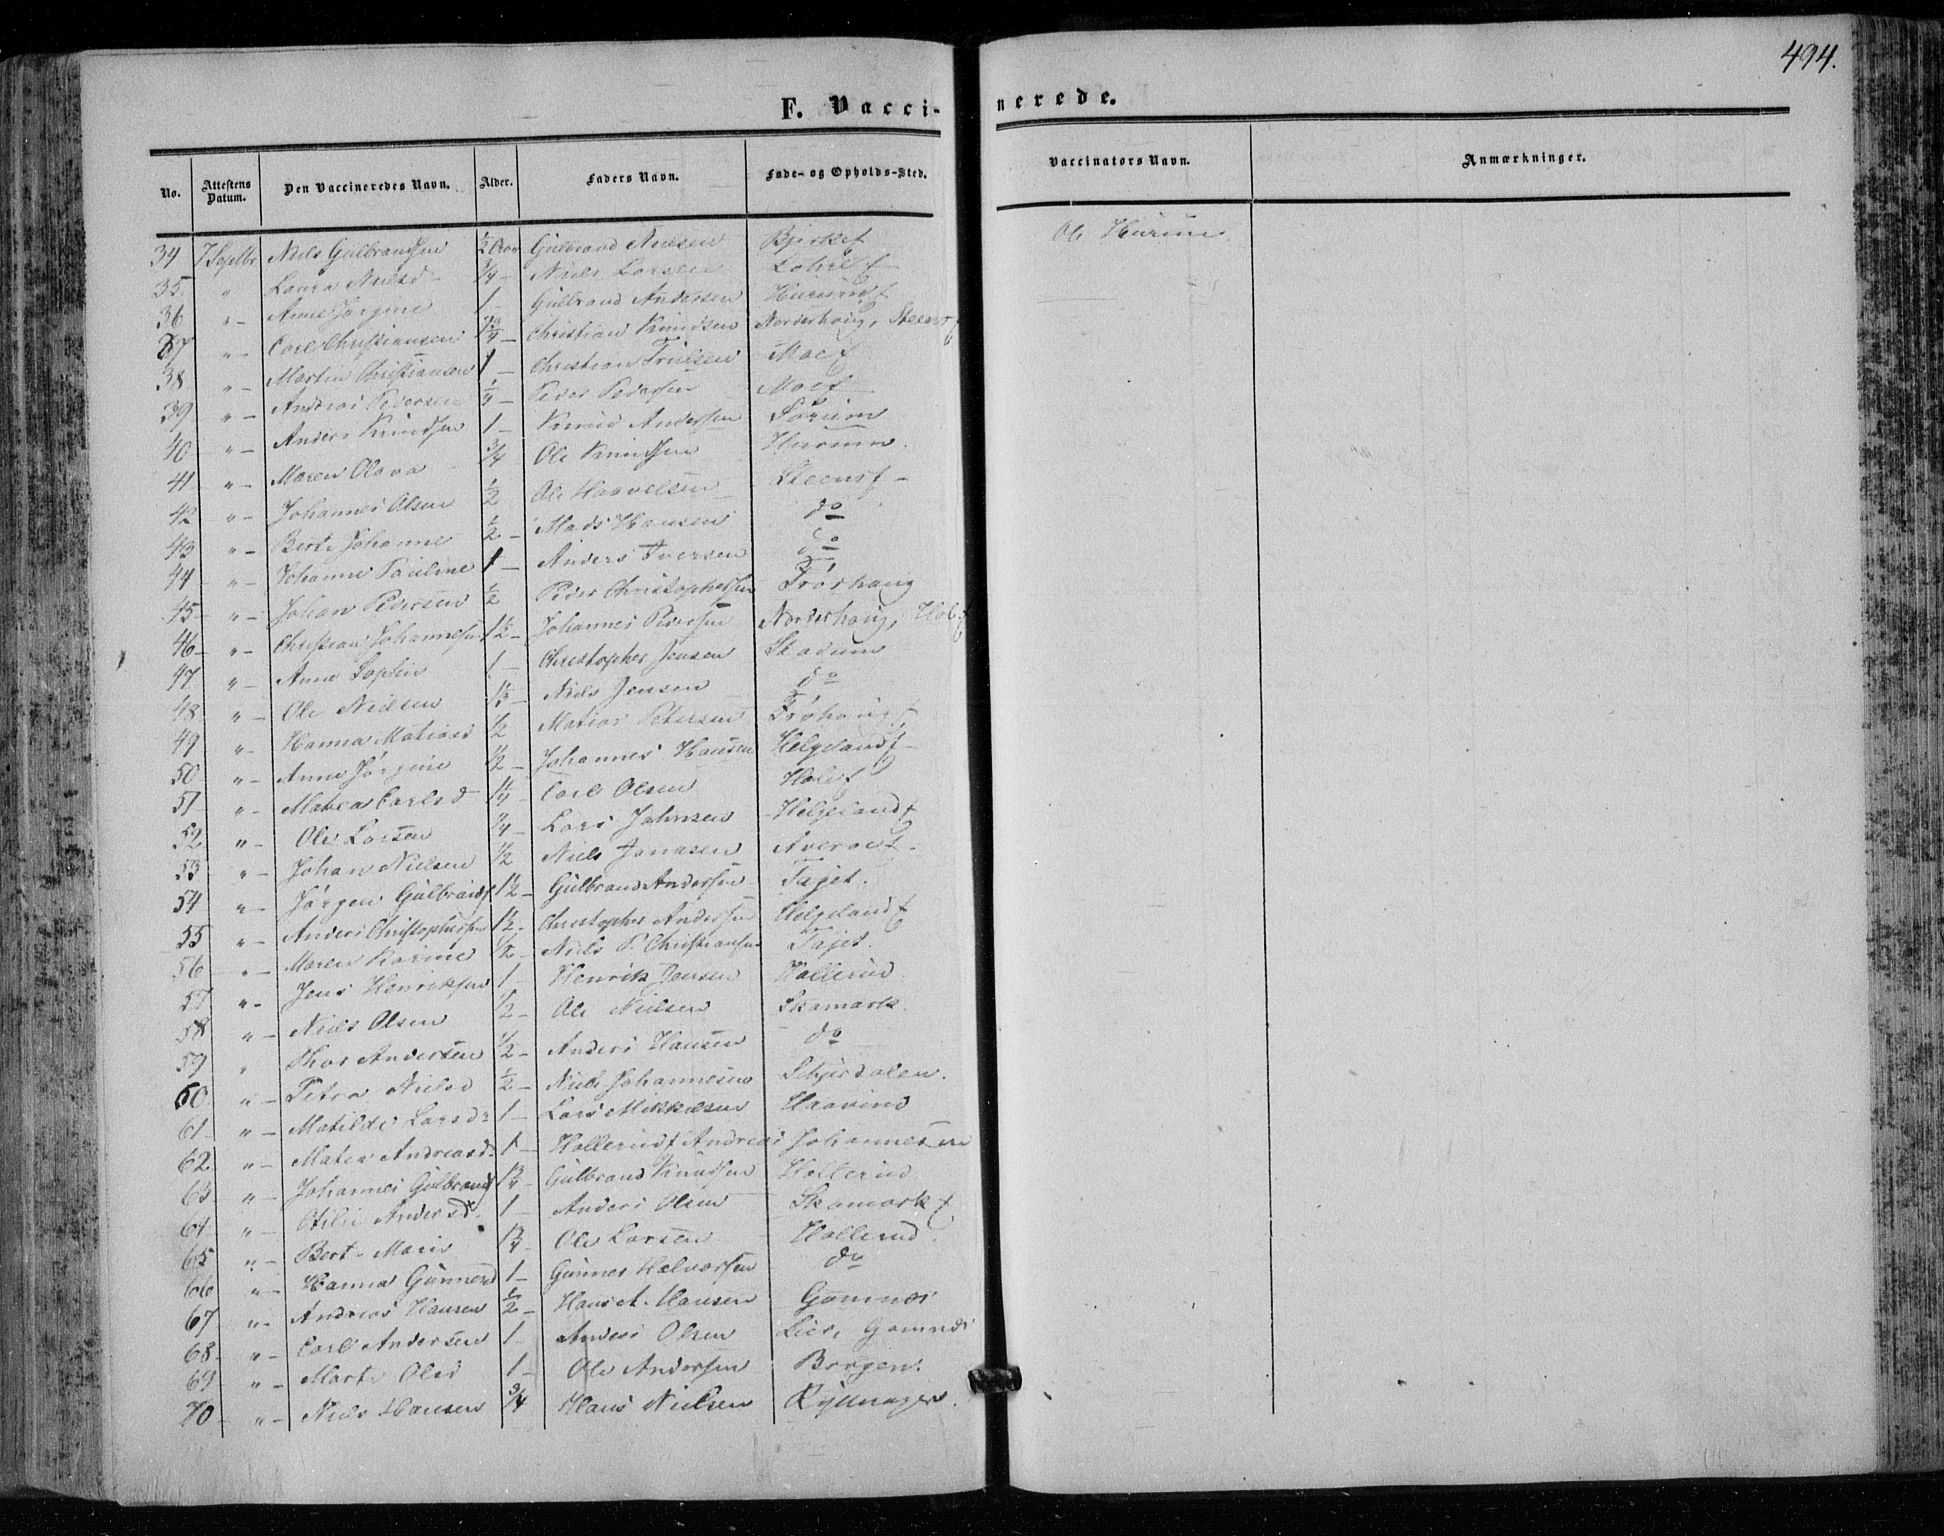 494.
F. Vaccinerede.
No. Attestens Datum. Den Vaccineredes Navn. Alder. Faders Navn. Føde- og Opholds-Sted. Vaccinators Navn. Anmærkninger.
34 7 Septbr Niels Gulbrandsen ½ Aar Gulbrand Nielsen Bjerke Ole Hurum
35. " Laura Nielsd - ¾ - Niels Larsen
36 " - Anne Jørgine 1 - Gulbrand Andersen
37 " - Carl Christiansen Christian Knudsen Norderhoug, Steens
38 " - Martin Christiansen 1 - Christian Truelsen Moe
39 " - Andreas Pedersen Peder Pedersen Moe
40 " - Anders Knudsen 1 - Knud Andersen Sørum
41 " - Maren Olava ¾ Ole Knudsen Hurum
42 " - Johannes Olsen ½ Ole Haavelsen Steens
43 " - Berte Johanne ½ - Mads Hansen do
44 " - Johanne Pauline 1 - Anders Iversen do
45 - " - Johan Pedersen ½ Peder Christophersen Frøshoug
46 - " - Christian Johannesen 1½ - Johannes Pedersen Norderhoug,
47 " - Anne Sophie 1 - Christopher Jensen Skadum
48 " - Ole Nielsen Niels Jensen do
49 " - Hanna Matiasd ½ Matias Petersen
50 " - Anne Jørgine ½ - Johannes Hansen Helgeland
51 " - Matea Carlsd 1¼ - Carl Olsen Hole
52 " - Ole Larsen ¾ - Lars Johnsen Helgeland
53 " - Johan Nielsen ½ Niels Jonasen
54 " - Jørgen Gulbrands 1½ - Gulbrand Andersen
55 " - Anders Christophersen 1½ - Christopher Andersen Helgeland
56 " - Maren Karine ½ - Niels P. Christiansen
57 " - Jens Henriksen 1 - Henrik Jensen Hollerud
58 " - Niels Olsen ½ - Ole Nielsen Skamark.
59 " Thor Andersen ½ - Anders Hansen do
60 " - Petra Nielsd ½ - Niels Johannesen Schjerdalen.
61 - " - Matilde Larsdr 1 - Lars Mikkelsen Haavind
62 " - Matea Andreasd. 1 - Hollerud Andreas Johannesen
63 - " - Johannes Gulbrands 1¾ Gulbrand Knudsen Hollerud
64 " - Otilie Andersd - 1 - Anders Olsen Skamark
65 " - Bert. Marie 1¾ - Ole Larsen Hollerud.
66 " - Hanna Gunnersd 1 - Gunner Halvorsen do
67 - " - Andreas Hansen ½ - Hans A. Hansen Gomnæs
68 - " - Carl Andersen 1 - Anders Olsen Lier, Gomnæs
69 - " - Marte Olsd 1 - Ole Andersen Borgen.
70 - " - Niels Hansen ¾ Hans Nielsen Rytterager.